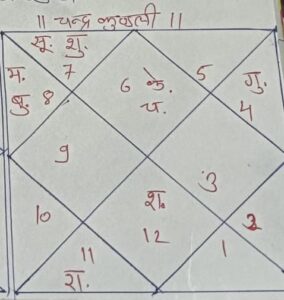 ॥ चन्द्र कुण्डली ॥
सू. शु.
7
6 के.
च.
5
गु.
4
म.
बु. 8
9
3
10
श.
12
2
11
रा.
1